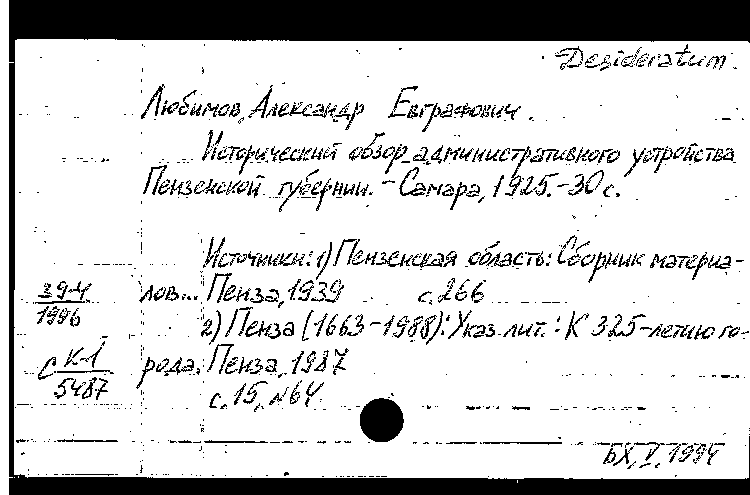 Desideratum.
Любимов, Александр Евграфович.
Исторический обзор административного устройства
Пензенской губернии. - Самара, 1925. - 30 с.
Источники: 1) Пензенская область: Сборник материа-
лов... Пенза, 1939 с. 266
39-4
1996
2) Пенза (1663-1988): Указ. лит.: К 325-летию го-
рода. Пенза, 1987
с К-1
5487
с. 15, №64
БХ, V, 1994